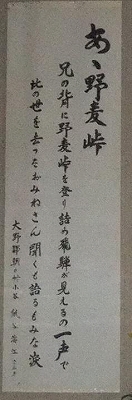 あゝ野麦峠
兄の背に野麦峠を登り詰め飛騨が見えるの一声で
此の世を去ったおみねさん聞くも語るもみな涙
大野郡朝日村小谷